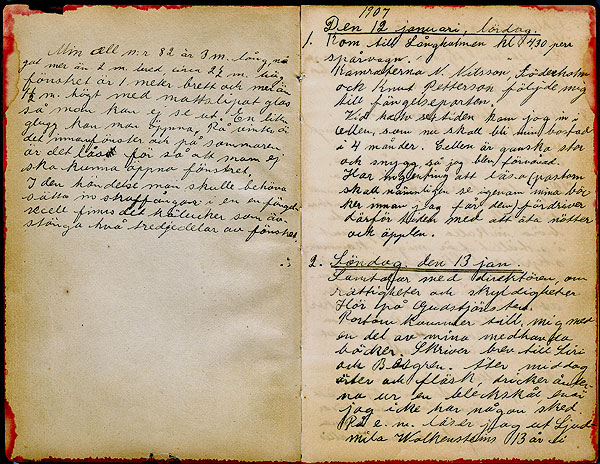 Min cell n:r 82 är 3 m. lång, nå
got mer än 2 m. bred, circa 2½ m. hög,
fönstret är 1 meter brett och mer än
½ m. högt med mattslipat glas
så man kan ej se ut. En liten
glugg kan man öppna. På vintern är
det innanfönster och på sommaren
är det låst för så att man ej
ska kunna öppna fönstret.
I den händelse man skulle behöva
sätta in straffångar i en
finnes det träluckor som av-
stänga två tredjedelar av fönstret.
1907
Den 12 januari, lördag.
1. Kom till Långholmen kl. 430 per
spårvagn.
Kamraterna N. Nilsson, Söderholm
och Knut Petterson följde mig
till fängelseporten.
Vid halv sextiden kom jag in i
cellen, som nu skall bli min bostad
i 4 månader. Cellen är ganska stor
och snygg så jag blev förvånad.
Har ingenting att läsa (pastorn
skall nämnligen se igenom mina böc
ker innan jag får dem) fördriver
därför tiden med att äta nötter
och äpplen.
2. Söndag den 13 jan.
Samtalar med direktören, om
rättigheter och skyldigheter
Hör på Gudstjänsten.
Pastorn kommer till mig med
en del av mina medhavda
böcker. Skriver brev till Siri
och Bergren. Äter middag
ärter och fläsk, dricker
ur en bleckskål enär
jag icke har någon sked.
På e. m. läser jag ut Ljud
mila Wolkensteins 13 år i